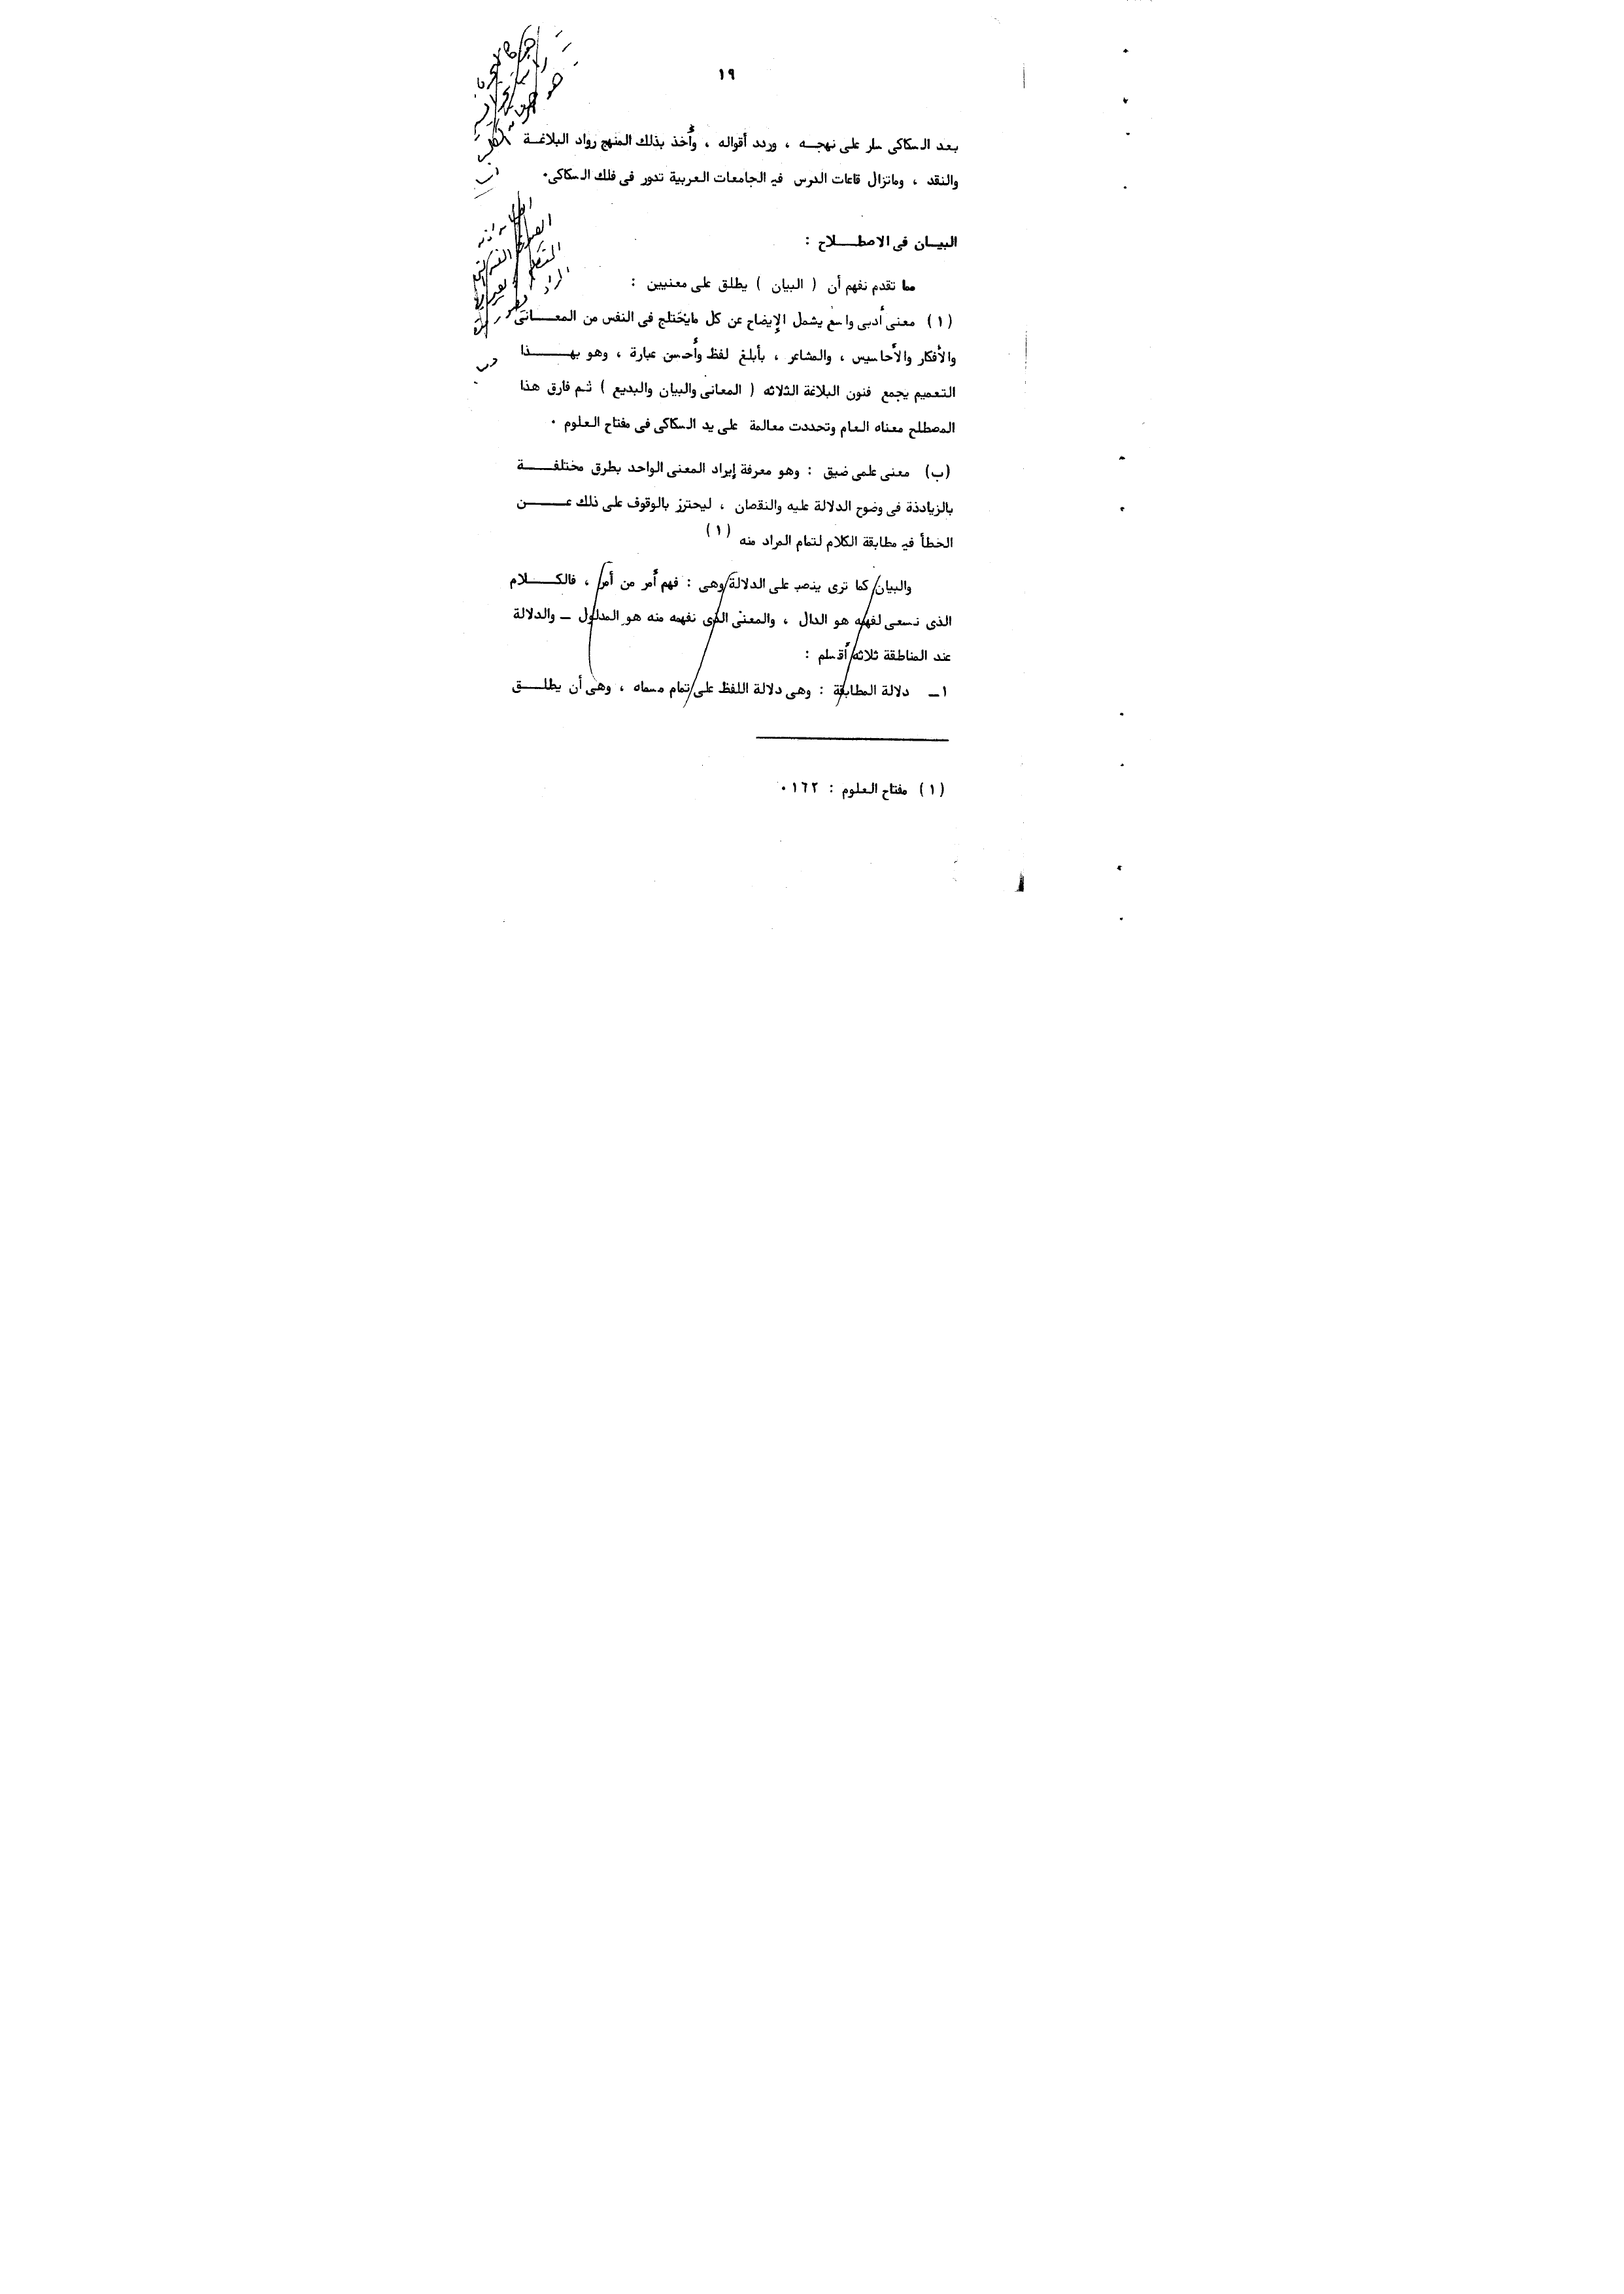 ١٩
بعد السكاكى سار على نهجـــه ، وردد أقواله ، وأخذ بذلك المنهج رواد البلاغـــة
والنقد ، وماتزال قاعات الدرس فى الجامعات العربية تدور فى فلك السكاكى٠
البيـــان فى الاصطـــلاح :
مما تقدم نفهم أن ( البيان ) يطلق على معنيين :
(١) معنى أدبى واسع يشمل الإيضاح عن كل مايختلج فى النفس من المعـــانى
والأفكار والأحاسيس ، والمشاعر ، بأبلغ لفظ وأحسن عبارة ، وهو بهـــذا
التعميم يجمع فنون البلاغة الثلاثه ( المعانى والبيان والبديع ) ثم فارق هذا
المصطلح معناه العام وتحددت معالمة على يد السكاكى فى مفتاح العلوم ٠
(ب) معنى علمى ضيق : وهو معرفة إيراد المعنى الواحد بطرق مختلفـــة
بالزيادذة فى وضوح الدلالة عليه والنقصان ، ليحترز بالوقوف على ذلك عـــن
الخطأ فى مطابقة الكلام لتمام المراد منه (١)
والبيان كما ترى ينصب على الدلالة وهى : فهم أمر من أمر ، فالكـــلام
الذى نسعى لفهمه هو الدال ، والمعنى الذى نفهمه منه هو المدلول ــ والدلالة
عند المناطقة ثلاثه أقسام :
١ــ دلالة المطابقة : وهى دلالة اللفظ على تمام مسماه ، وهى أن يطلـــق
(١) مفتاح العلوم : ١٦٢ ٠